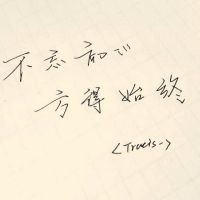 不忘初心
方得始终
<Travis->